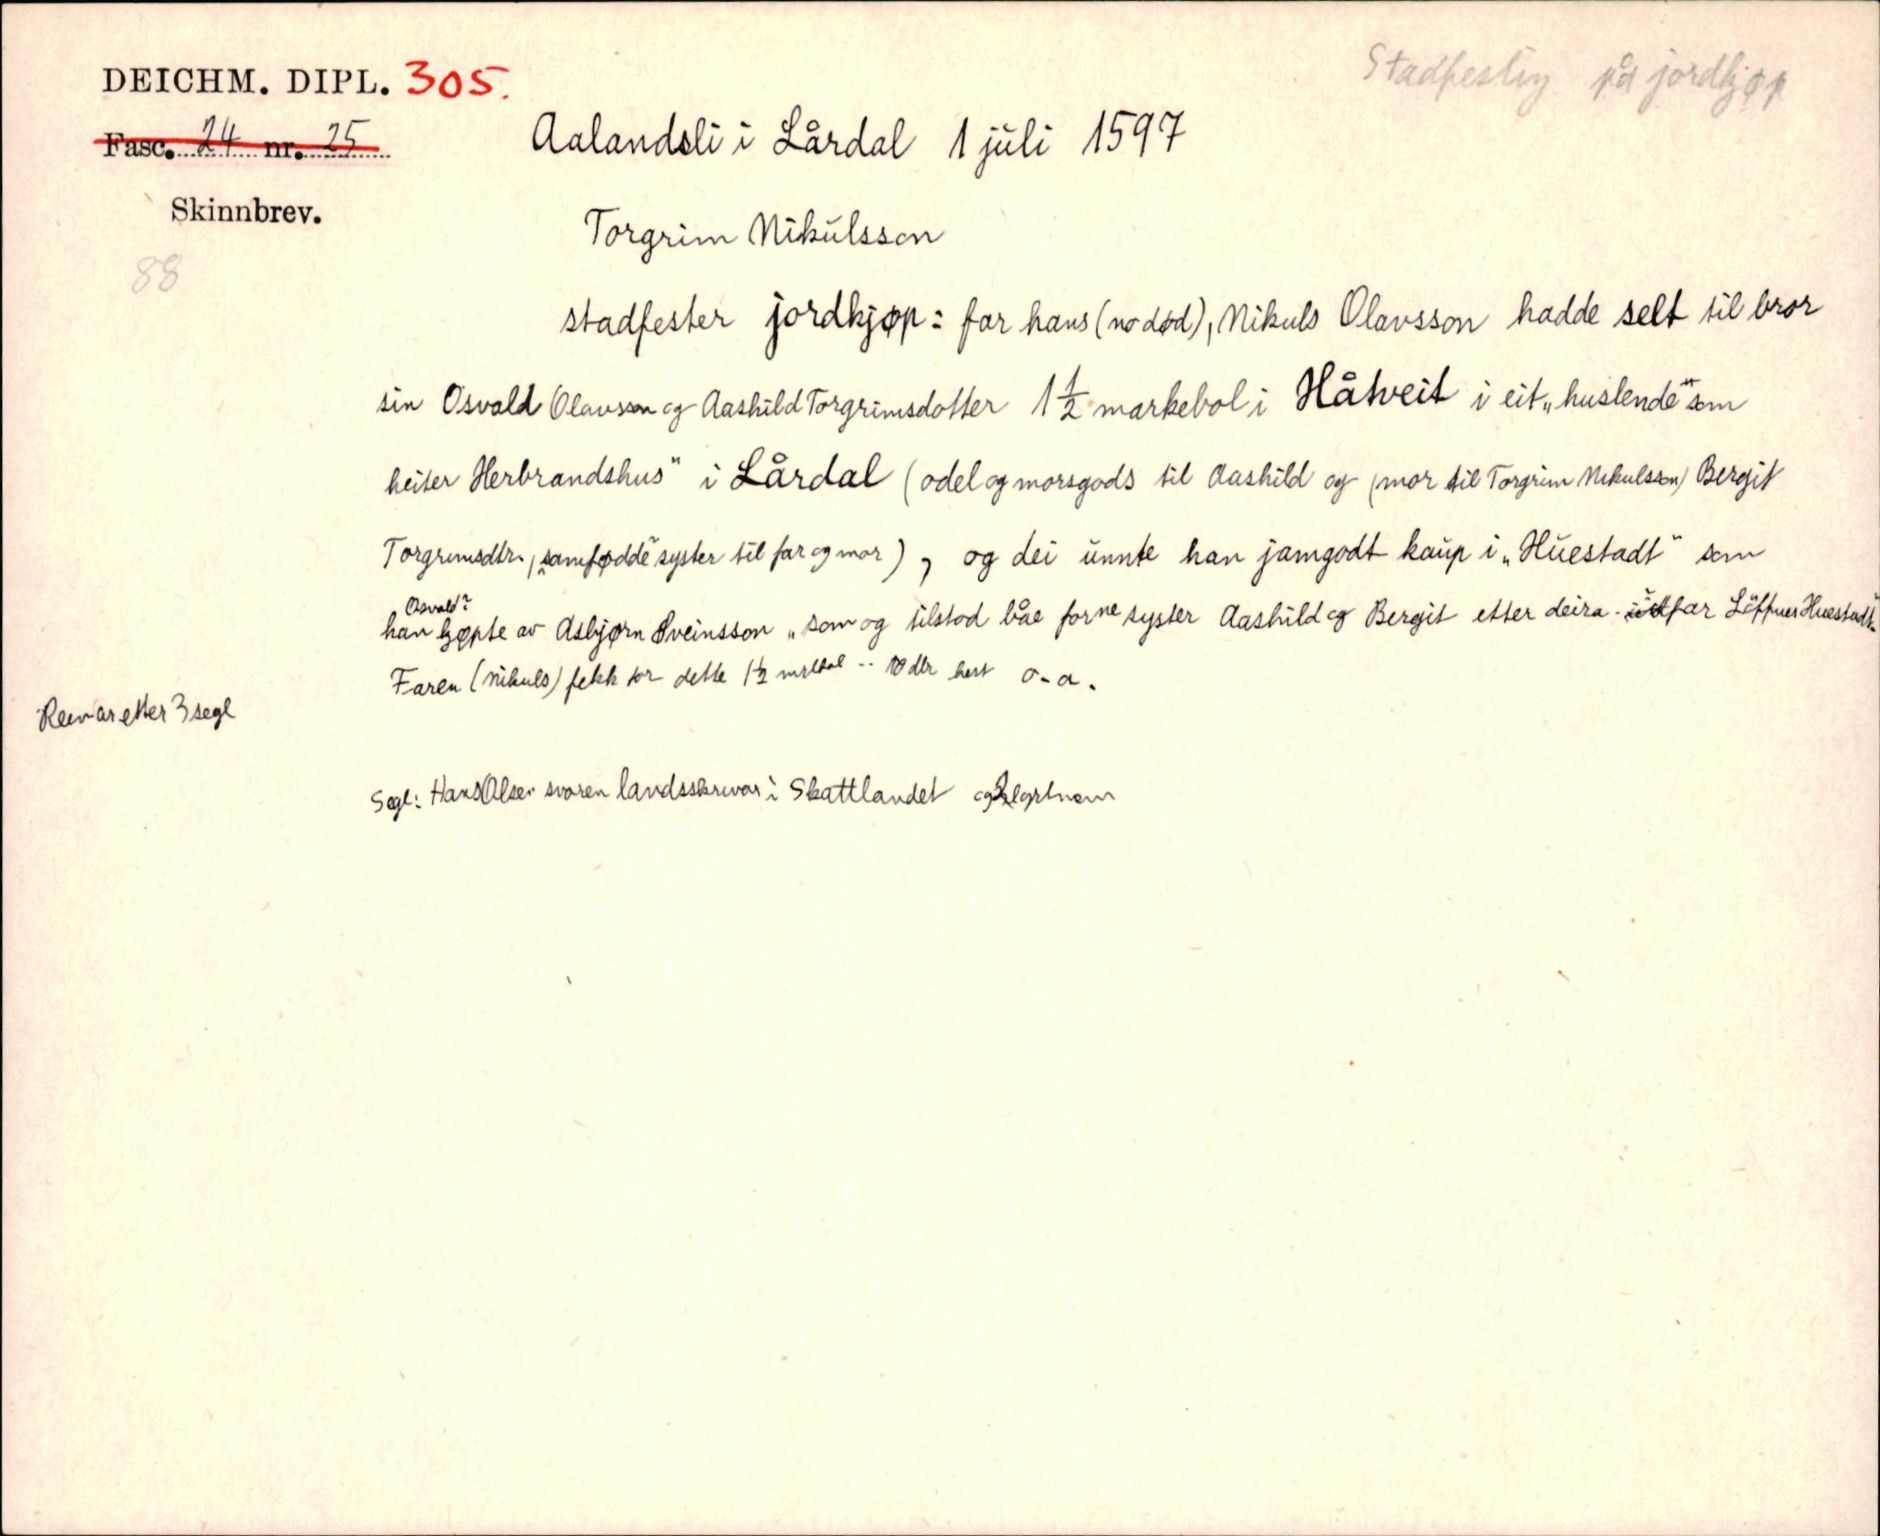 DEICHM. DIPL. 305.
Stadfesting på jordkjøp
Fasc. 24 nr. 25
Aalandsli i Lårdal 1 juli 1597
Skinnbrev.
88
Torgrim Nikulsson
stadfester jordkjøp: far hans (no død), Nikuls Olavsson hadde selt til bror
sin Osvald Olavsson og Aashild Torgrimsdotter 1 1/2 markebol i Håtveit i eit „huslende" som
heiter Herbrandshus" i Lårdal (odel og morsgods til Aashild og (mor til Torgrim Nikulsson) Bergit
Torgrimsdtr., „samfødde" syster til far og mor), og dei unnte han jamgodt kaup i „Huestadt" som
Osvald?
han kjøpte av Asbjørn Sveinsson „som og tilstod båe forne syster Aashild og Bergit etter deira far Löffuer Huestadt"
Faren (Nikuls) fekk for dette 1 1/2 mrkbol .. 10 dlr hest o.a.
Reimar etter 3 segl
Segl: Hans Olsen svoren landsskrivar i Skattlandet og 2